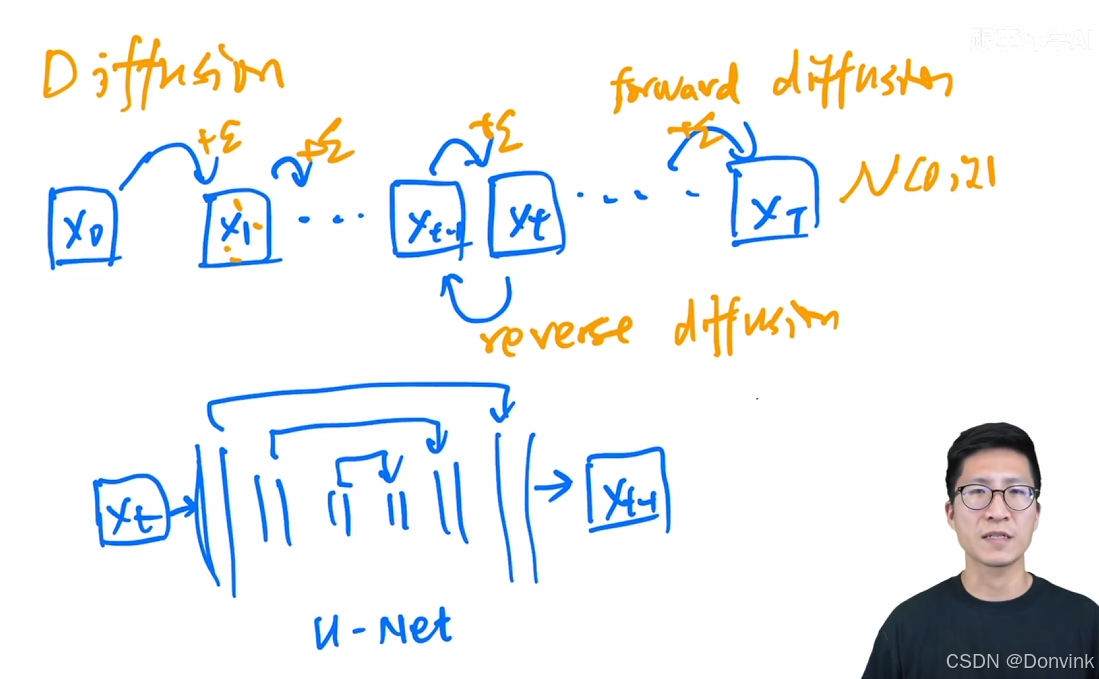 Diffusion
forward diffusion
+ε +ε +ε +ε
x₀ x₁ ... xₜ₋₁ xₜ ... x_T N(0, I)
reverse diffusion
xₜ xₜ₋₁
U-Net
CSDN @Donvink